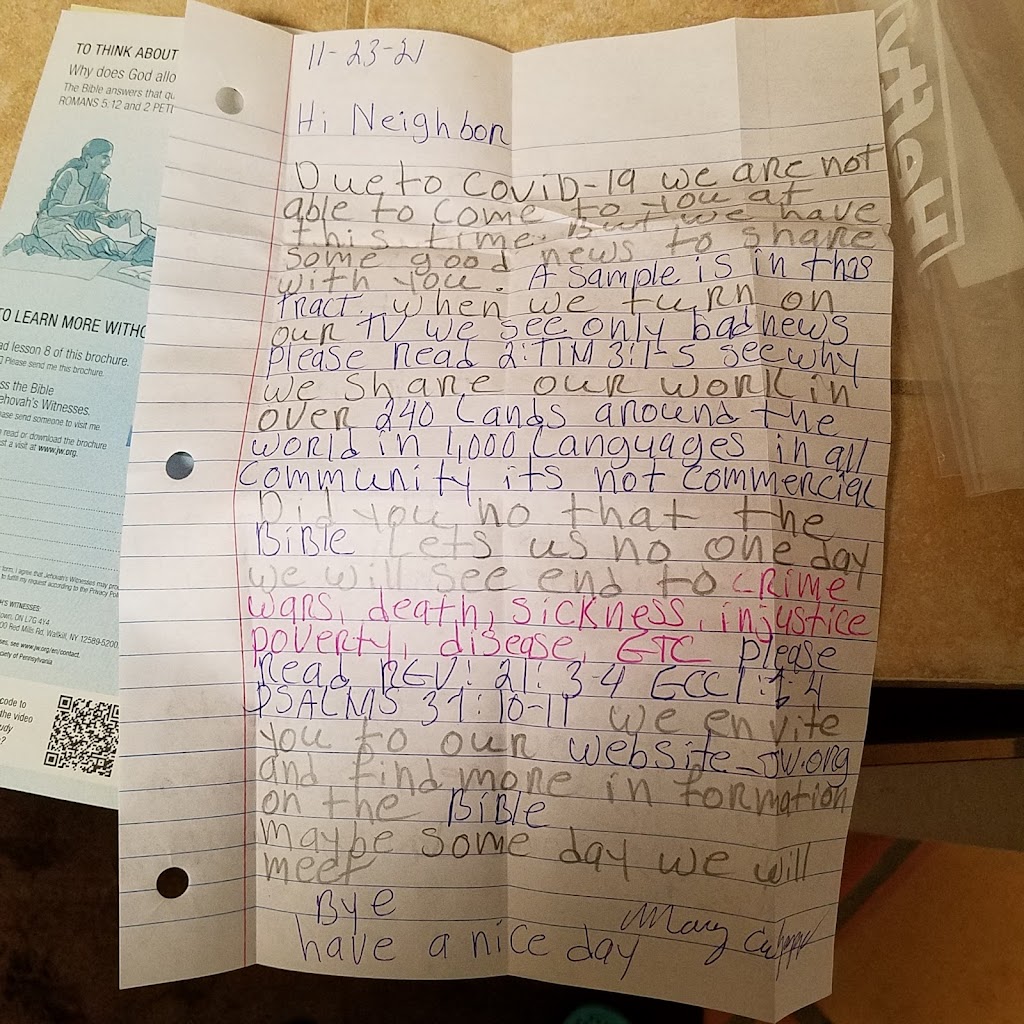 TO THINK ABOUT
Why does God allo
The Bible answers that qu
ROMANS 5:12 and 2 PETE
TO LEARN MORE WITHO
ad lesson 8 of this brochure.
Please send me this brochure.
ss the Bible
ehovah's Witnesses.
ase send someone to visit me.
read or download the brochure
st a visit at www.jw.org.
form, I agree that Jehovah's Witnesses may
to fulfill my request according to the Privacy Pol
H'S WITNESSES:
own, ON L7G 4Y4
00 Red Mills Rd, Wallkill, NY 12589-5200
ses, see www.jw.org/en/contact.
ociety of Pennsylvania
code to
the video
udy
?
11-23-21
Hi Neighbor
Due to COVID-19 we are not
able to come to you at
this time. But we have
some good news to share
with you. A sample is in this
Tract. when we turn on
our TV we see only bad news
Please Read 2:TIM 3:1-5 see why
we share our work in
over 240 Lands around the
world in 1,000 Languages in all
community its not commercial
Did you no that the
BiBle Lets us no one day
we will see end to crime
wars, death, sickness, injustice
poverty, disease, ETC please
Read REV: 21: 3-4 ECC 1: 4
PSALMS 37:10-11 we envite
you to our website-JW.org
and find more in formation
on the BiBle
maybe some day we will
meet
Bye
have a nice day
Mary